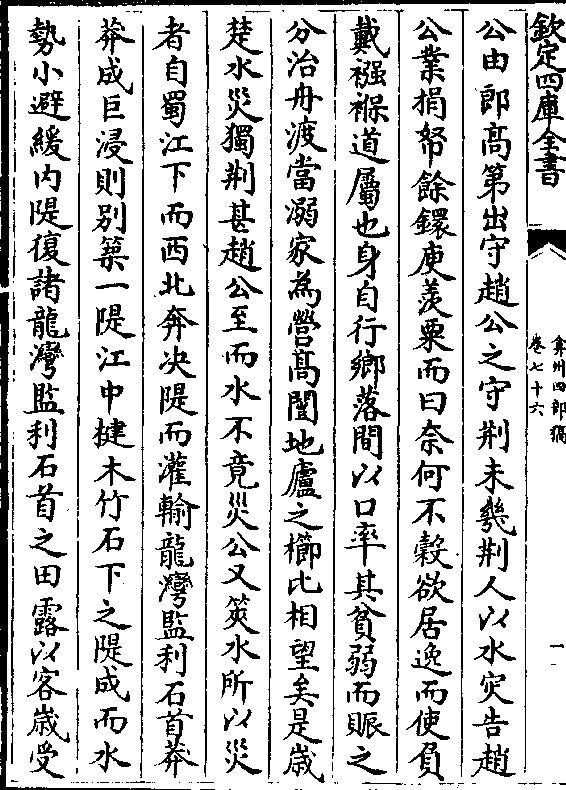 欽定四庫全書
弇州四部稿
卷七十六
一
公由郎髙第出守趙公之守荆未幾荆人以水灾告趙
公業捐帑餘鐶庾羡粟而曰奈何不穀欲居逸而使負
戴襁褓道屬也身自行鄉落間以口率其貧弱而賑之
分治舟渡當溺家為營髙閣地廬之櫛比相望矣是歳
楚水災獨荆甚趙公至而水不竟災公又筴水所以災
者自蜀江下而西北奔決隄而灌輸龍灣監利石首莽
莽成巨浸則別築一隄江中揵木竹石下之隄成而水
勢小避緩内隄復諸龍灣監利石首之田露以客嵗受